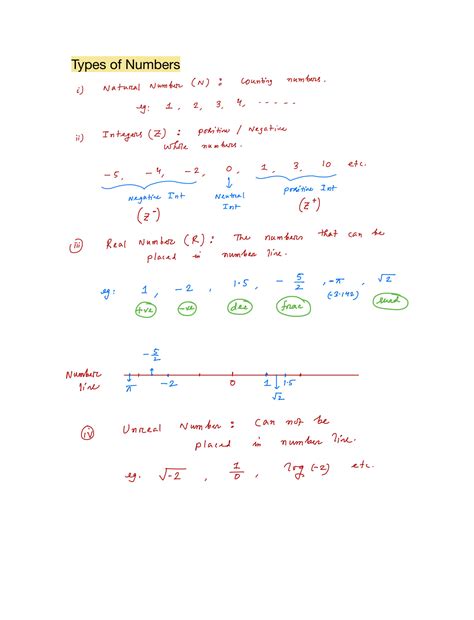 Types of Numbers
i) Natural Number (N) : Counting numbers.
eg: 1, 2, 3, 4, -----
ii) Integers (Z) : positive / Negative
Whole numbers.
-5, -4, -2, 0, 1, 3, 10 etc.
Negative Int Neutral Int positive Int
(Z⁻) (Z⁺)
iii) Real Number (R) : The numbers that can be
placed in number line.
eg: 1, -2, 1.5, -5/2, -π, √2
(-3.142)
+ve -ve dec frac
-5/2
Number line π -2 0 1 1.5
√2
iv) Unreal Number : Can not be
placed in number line.
eg. √-2, 1/0, log(-2) etc.